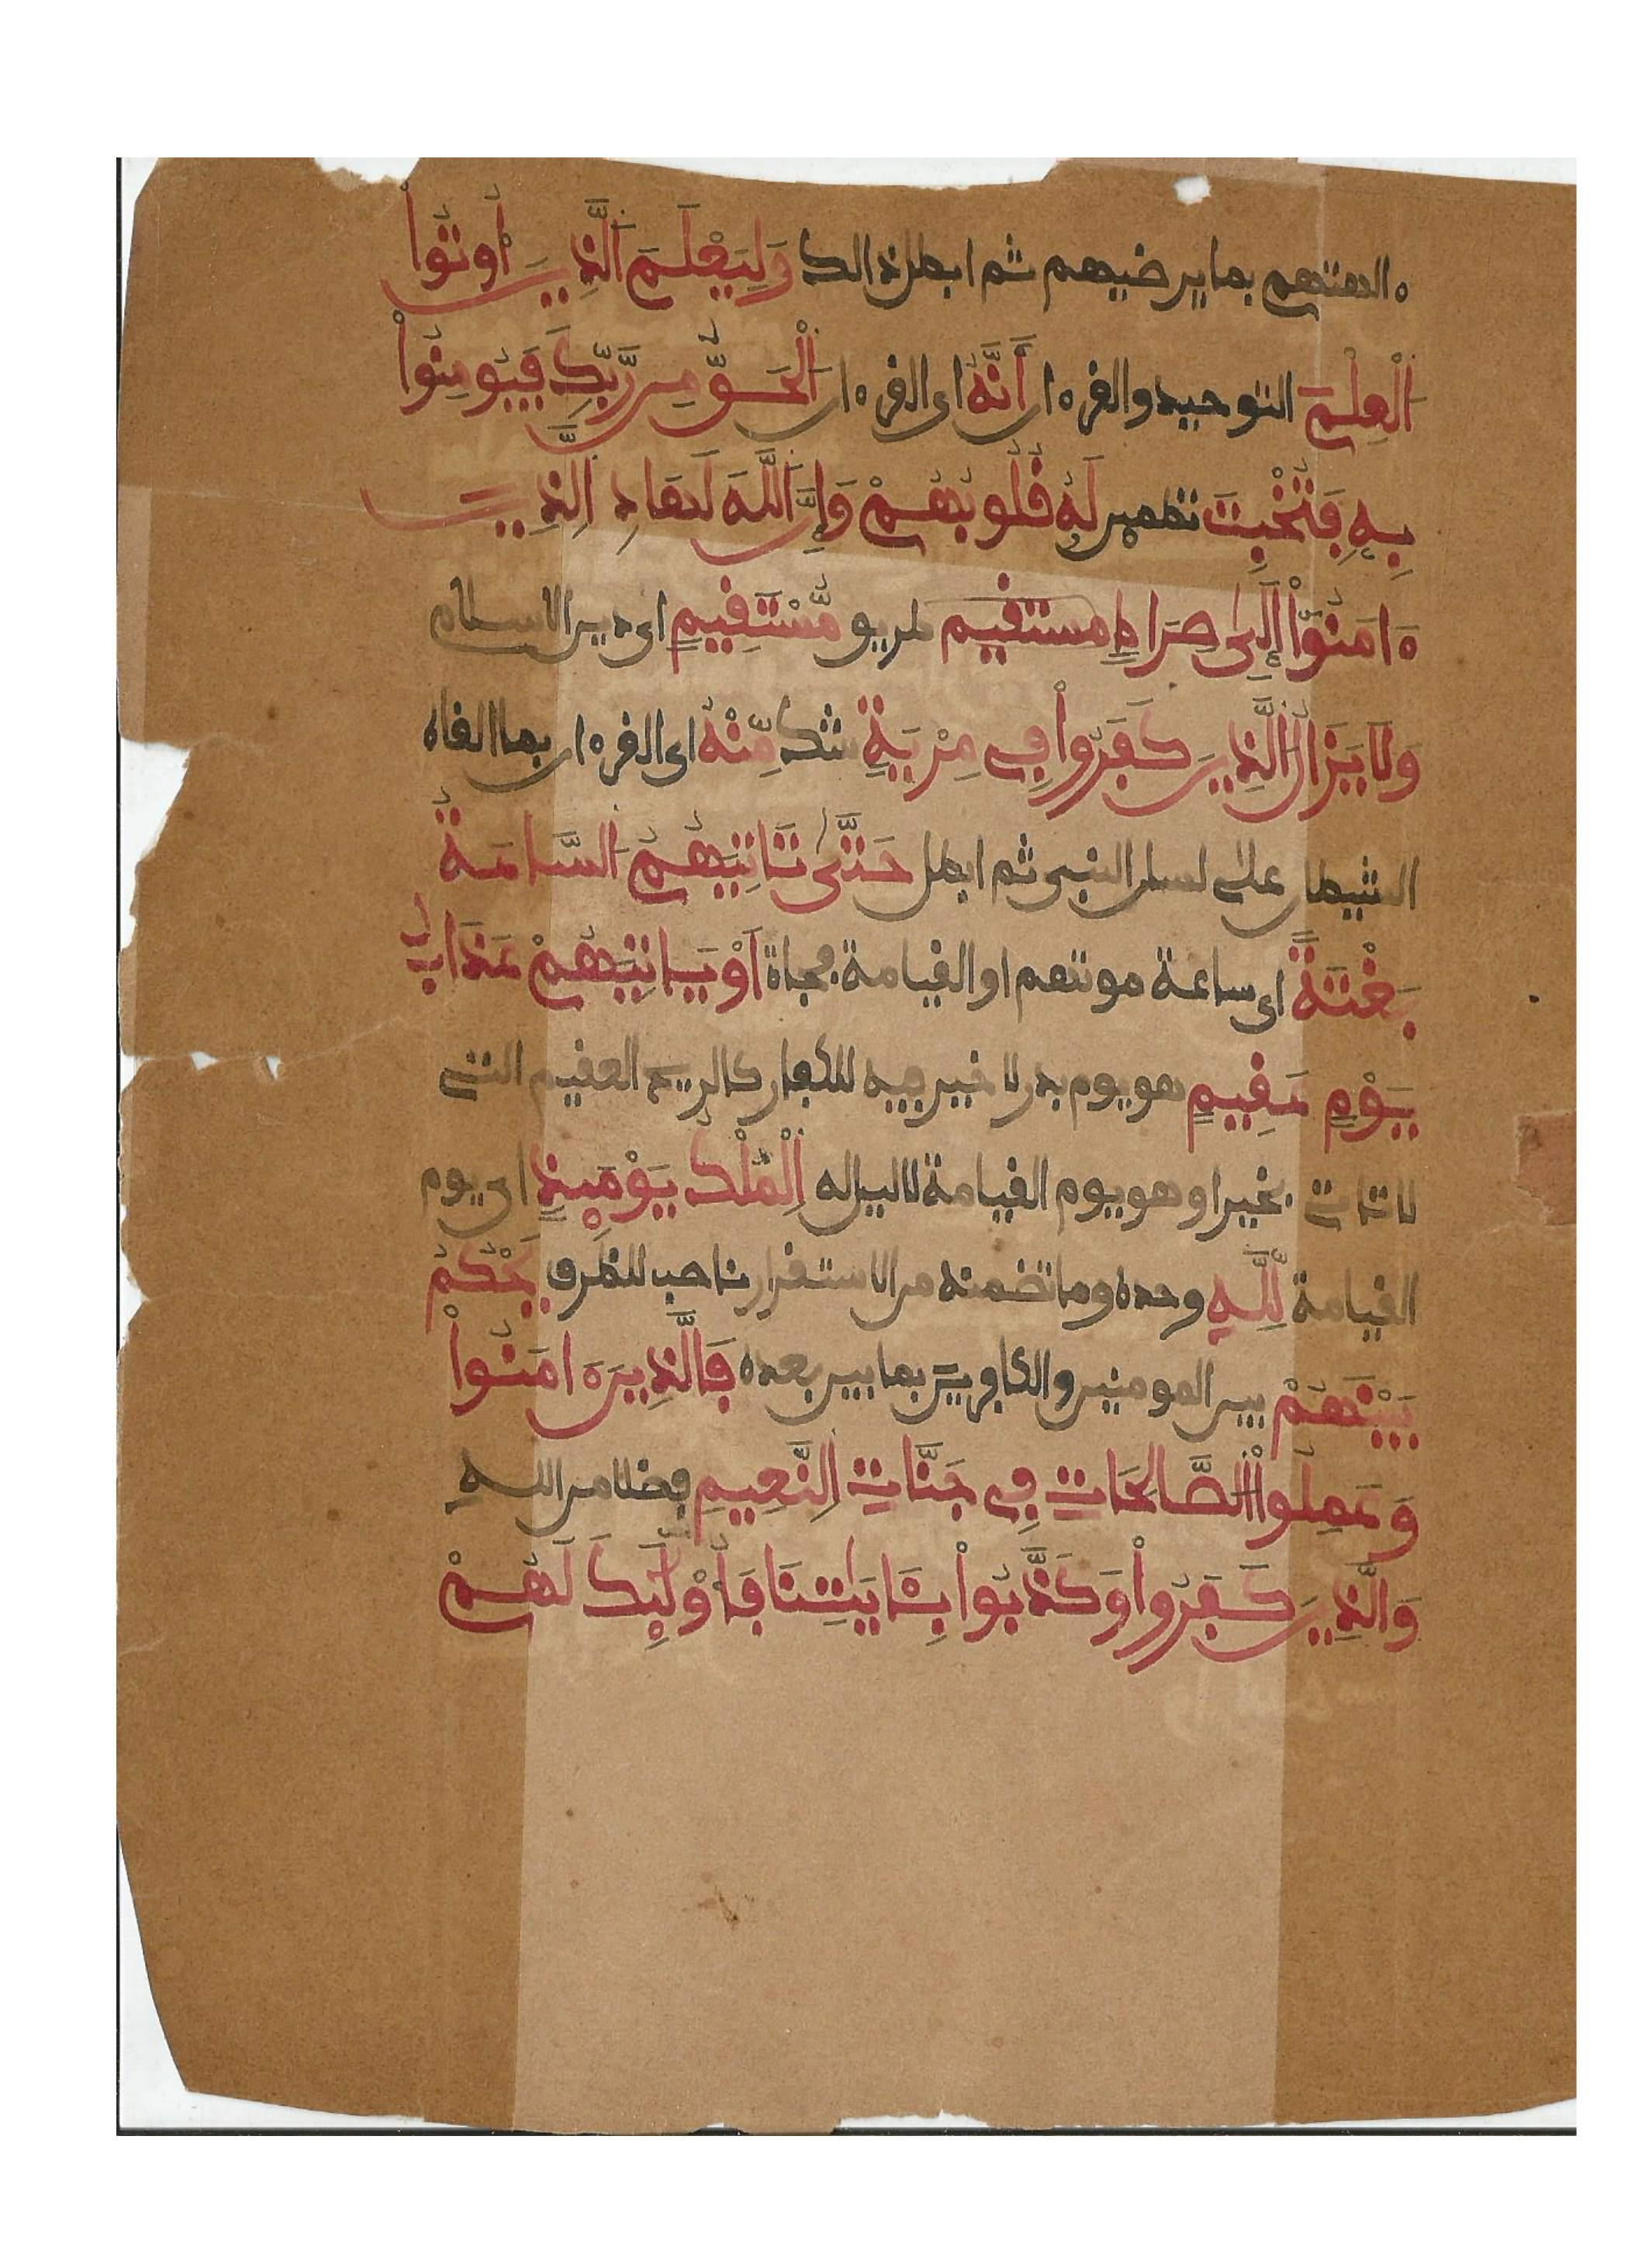 ءالهتهم بما يرضيهم ثم ابطل ذالك وَلِيَعْلَمَ اَلذِينَ أُوتُواْ
اُلْعِلْمَ التوحيد والقرءان أَنَّهُ اى القرءان اُلْحَقُّ مِن رَّبِّكَ فَيُومِنُواْ
بِهِ فَتُخْبِتَ تطمين لَهُ قُلُوبُهُمْ وَإِنَّ اَللَّهَ لَهَادِ اِلذِينَ
ءَامَنُواْ إِلَىٰ صِرَاطٍ مستقيم طريق مُّسْتَقِيمٍ اى دين الاسلام
وَلَا يَزَالُ اُلذِينَ كَفَرُواْ فِى مِرْيَةٍ شك مِّنْهُ اى القرءان بما القاه
الشيطان على لسان النبى ثم ابطل حَتَّىٰ تَاتِيَهُمُ اُلسَّاعَةُ
بَغْتَةً اى ساعة موتهم او القيامة فجاة اَوْ يَاتِيَهُمْ عَذَابُ
يَوْمٍ عَقِيمٍ هو يوم بدر لا خير فيه للكفار كالريح العقيم التى
لا تاتى بخير او هو يوم القيامة لا ليل له اِلْمُلْكُ يَوْمَئِذٍ اى يوم
القيامة لِّلهِ وحده وما تضمنه من الاستقرار ناصب للظرف يَحْكُمُ
بَيْنَهُمْ بين المومنين والكافرين بما بين بعده فَالذِينَ ءَامَنُواْ
وَعَمِلُواْ اُلصَّالِحَاتِ فِى جَنَّاتِ اِلنَّعِيمِ فضلا من اللهِ
وَالذِينَ كَفَرُواْ وَكَذَّبُواْ بِـَٔايَٰتِنَا فَأُوْلَٰٓئِكَ لَهُمْ